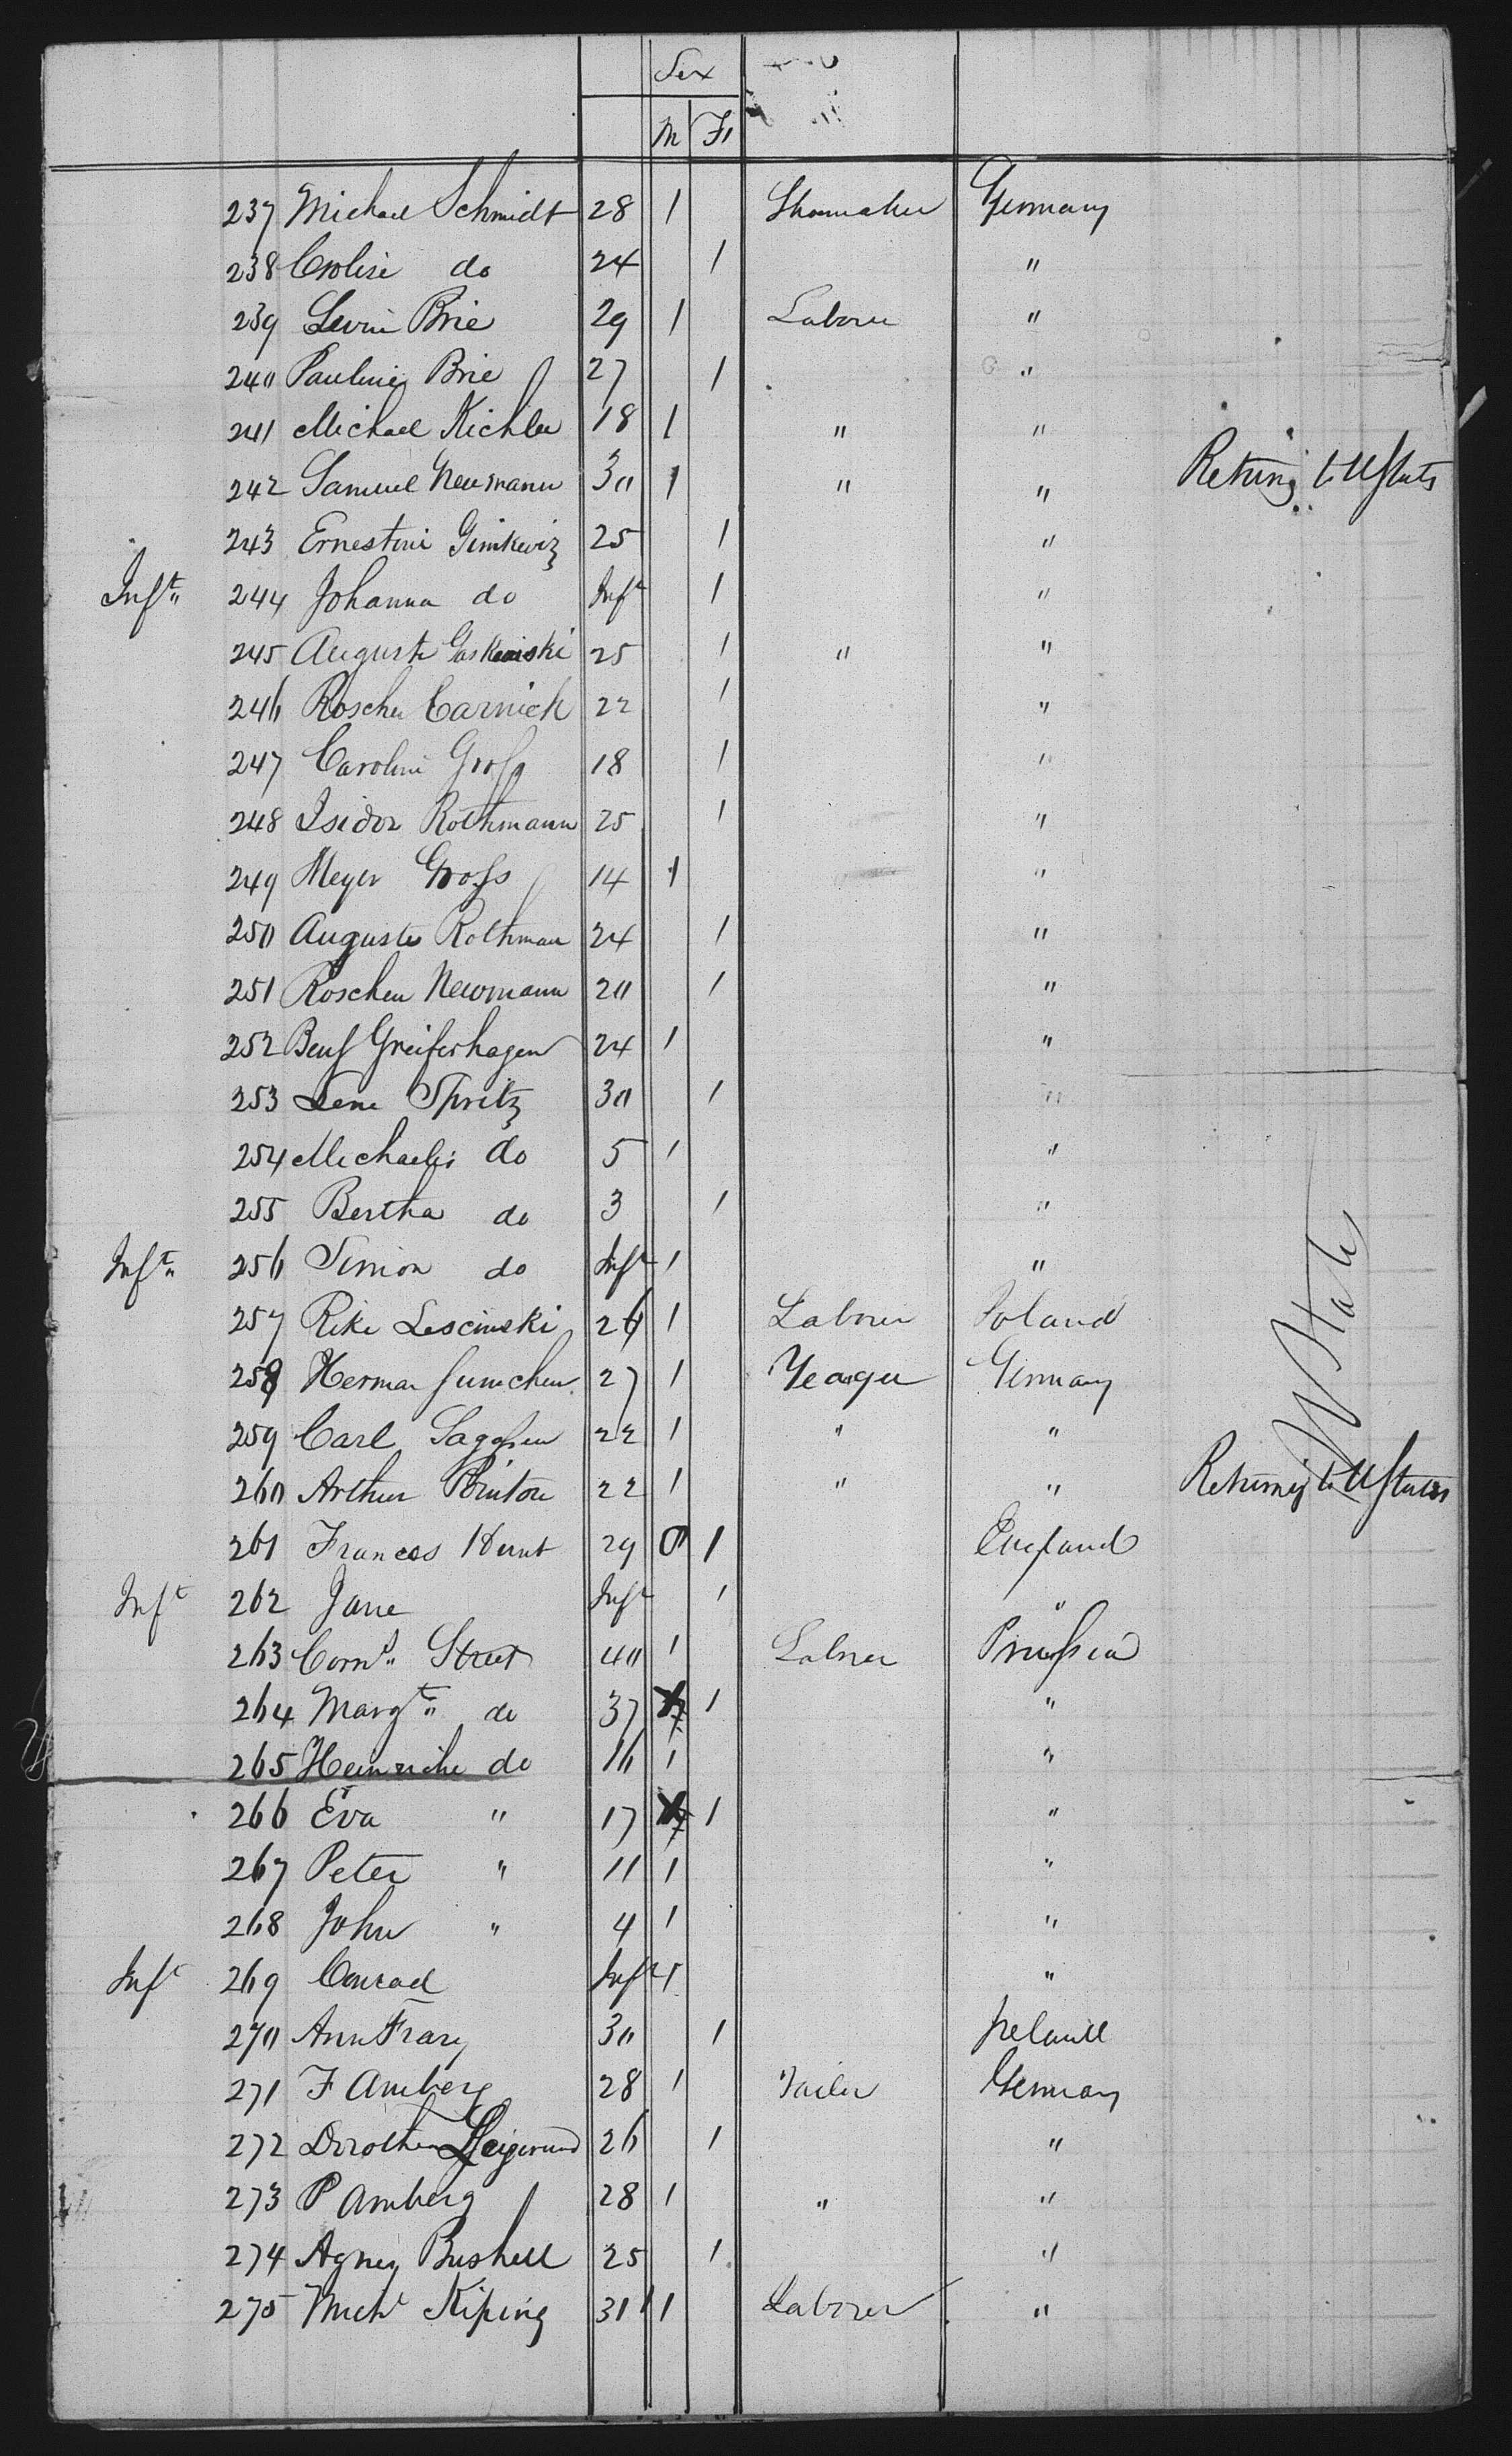 Sex
M F
237 Michael Schmidt 28 1 Shoemaker Germany
238 Caroline do 24 1 "
239 Levin Brie 29 1 Laborer "
240 Pauline Brie 27 1 "
241 Michael Kichler 18 1 " "
242 Samuel Neumann 30 1 " " Returng to UStates
243 Ernestine Gimkewiz 25 1 "
Inft" 244 Johanna do Inft 1 "
245 Auguste 25 1 " "
246 Roschen Carnick 22 1 "
247 Caroline Gross 18 1 "
248 Isidor Rothmann 25 1 "
249 Meyer Gross 14 1 "
250 Auguste Rothman 24 1 "
251 Roschen Newmann 20 1 "
252 Benj Greifenhagen 24 1 "
253 Lene Spritz 30 1 "
254 Michaelis do 5 1 "
255 Bertha do 3 1 "
Inft" 256 Simon do Inft 1 "
257 Rike Lescinski 26 1 Laborer Poland
258 Herman 27 1 Germany
259 Carl 22 1 " "
260 Arthur 22 1 " " Returning to UStates
261 Frances Hunt 29 1 England
Inft 262 Jane Inft 1 "
263 Cornd" Street 40 1 Laborer Prussia
264 Margt" do 37 1 "
265 Heinriche do 16 1 "
266 Eva " 17 1 "
267 Peter " 11 1 "
268 John " 4 1 "
Inft 269 Conrad Inft 1 "
270 Ann Frary 30 1 Ireland
271 F Amberg 28 1 Tailer Germany
272 Dorothea 26 1 "
273 P Amberg 28 1 " "
274 Agnes Bushell 25 1 "
275 Michl Kiping 31 1 Laborer "